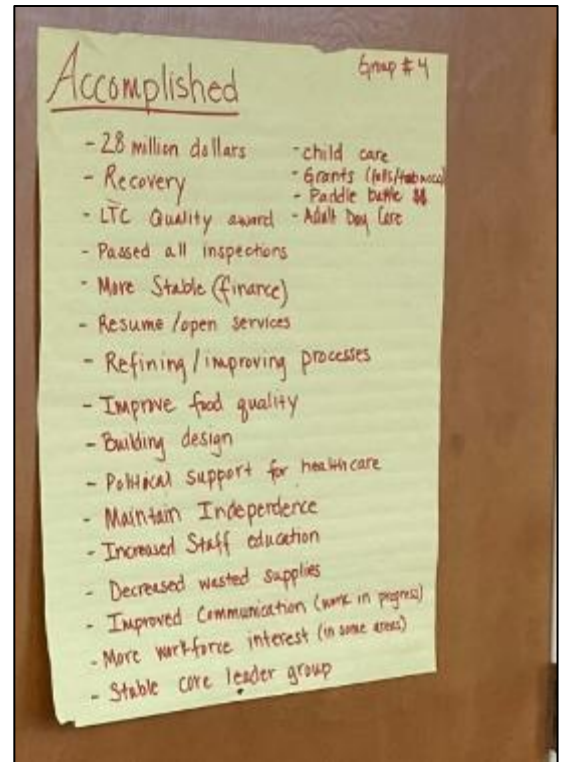 Group #4
Accomplished
- 28 million dollars
- Recovery
- LTC Quality award
- Passed all inspections
- More Stable (finance)
- Resume/open services
- Refining/improving processes
- Improve food quality
- Building design
- Political support for healthcare
- Maintain Independence
- Increased Staff education
- Decreased wasted supplies
- Improved Communication (work in progress)
- More workforce interest (in some areas)
- Stable core leader group
- child care
- Grants (falls/tobacco)
- Paddle battle $$
- Adult Day Care